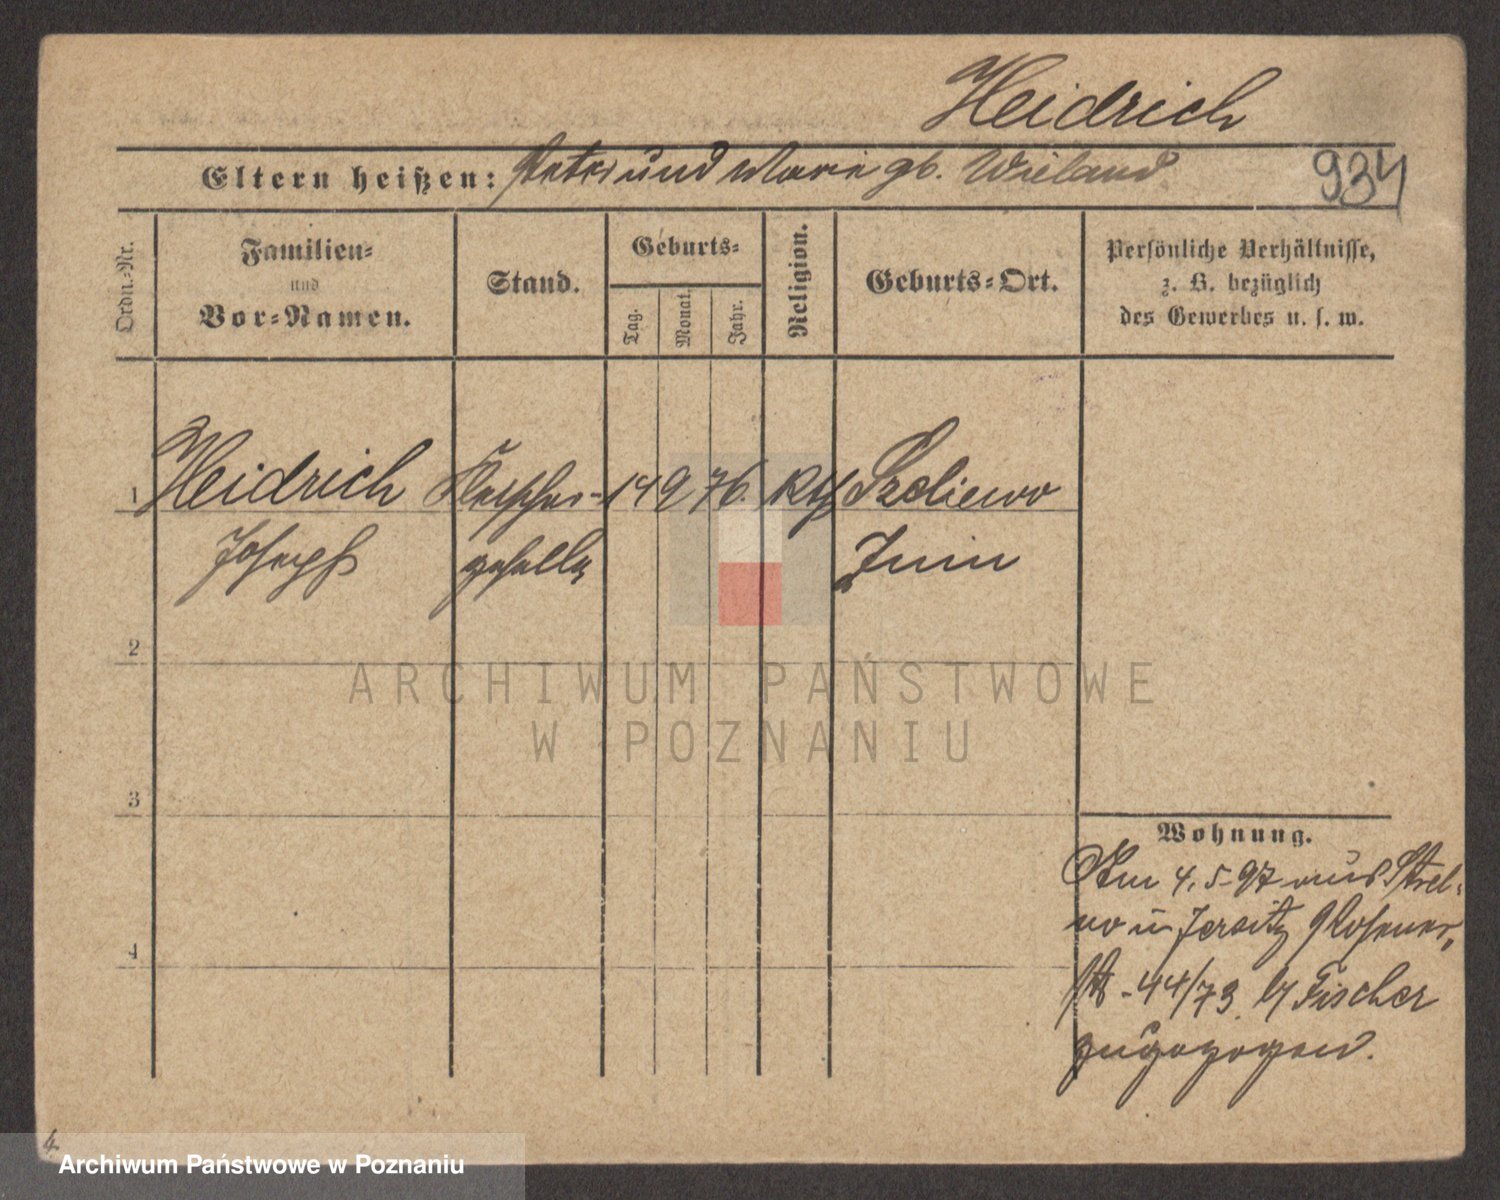 Heidrich
Eltern heißen: Peter und Marie gb. Wieland
934
Ordn.-Nr.
Familien-
und
Vor-Namen.
Stand.
Geburts-
Tag.
Monat.
Jahr.
Religion.
Geburts-Ort.
Persönliche Verhältnisse,
z. B. bezüglich
des Gewerbes u. s. w.
1 Heidrich 14 9 76
Joseph geselle
2
3
4
ARCHIWUM PAŃSTWOWE
W POZNANIU
Wohnung.
Am 4.5.97 aus Strel-
no in Jersitz
44/73 Fischer
zugezogen.
4
Archiwum Państwowe w Poznaniu